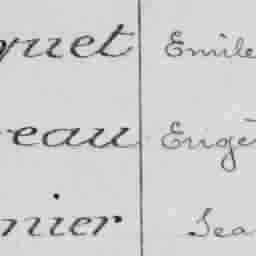 quet Emile
eau Eugè
nier Jea